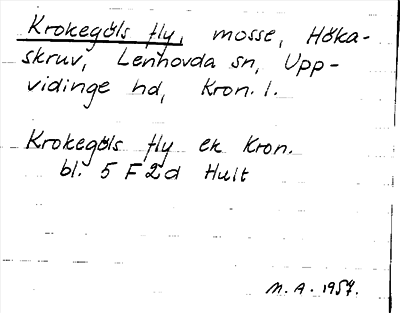 Krokegöls fly, mosse, Höka-
skruv, Lenhovda sn, Upp-
vidinge hd, Kron. l.
Krokegöls fly ek Kron.
bl. 5 F 2d Hult
M. A. 1957.